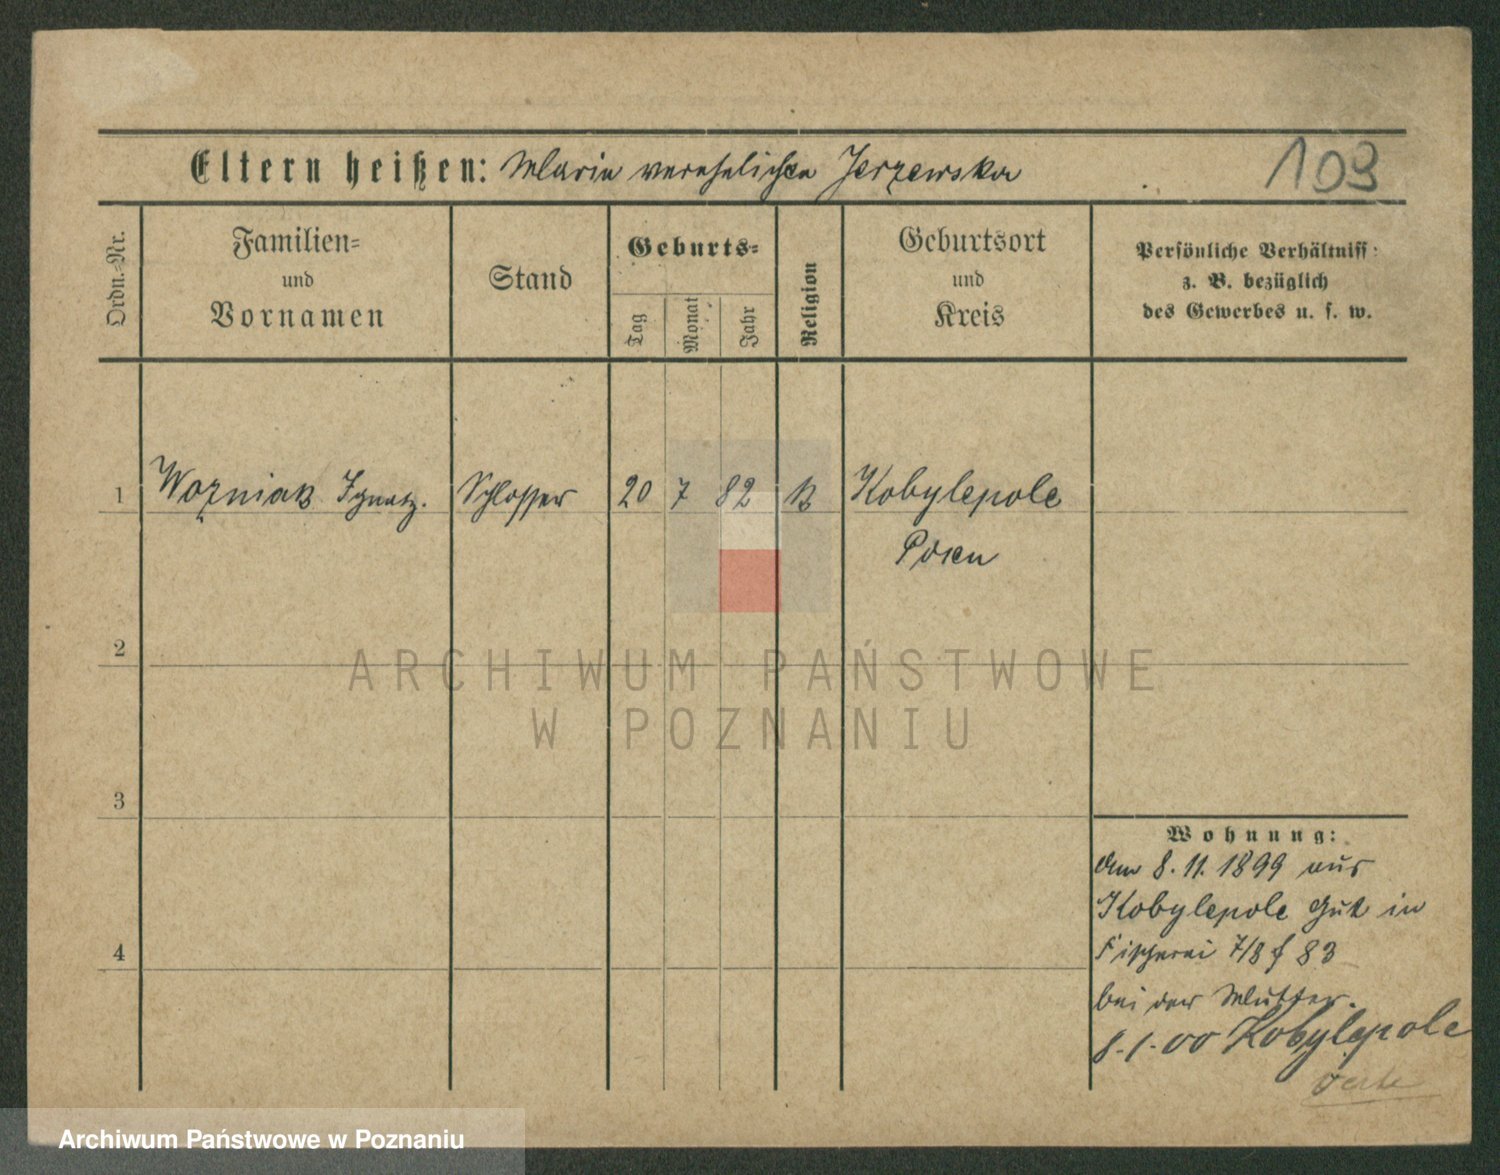 Eltern heißen: Maria verehelichte Jerzewska
103
Ordn.-Nr.
Familien-
und
Vornamen
Stand
Geburts-
Tag
Monat
Jahr
Religion
Geburtsort
und
Kreis
Persönliche Verhältniss
z. B. bezüglich
des Gewerbes u. s. w.
1 Wozniak Ignatz. Schlosser 20 7 82 k Kobylepole
Posen
2
3
4
Wohnung:
am 8.11.1899 aus
Kobylepole Gut in
Fischerei 7/8 f 83
bei der Mutter.
8.1.00 Kobylepole
ARCHIWUM PAŃSTWOWE
W POZNANIU
Archiwum Państwowe w Poznaniu